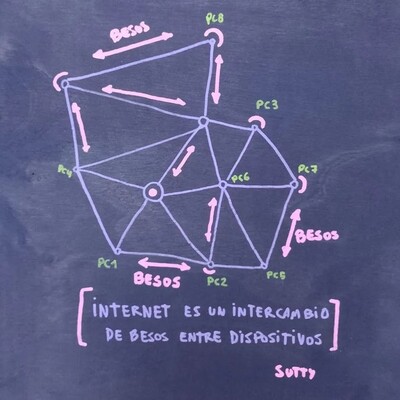 BESOS
PC8
PC3
PC4
PC6
PC7
BESOS
PC1
BESOS
PC2
PC5
[INTERNET ES UN INTERCAMBIO
DE BESOS ENTRE DISPOSITIVOS]
SUTTY